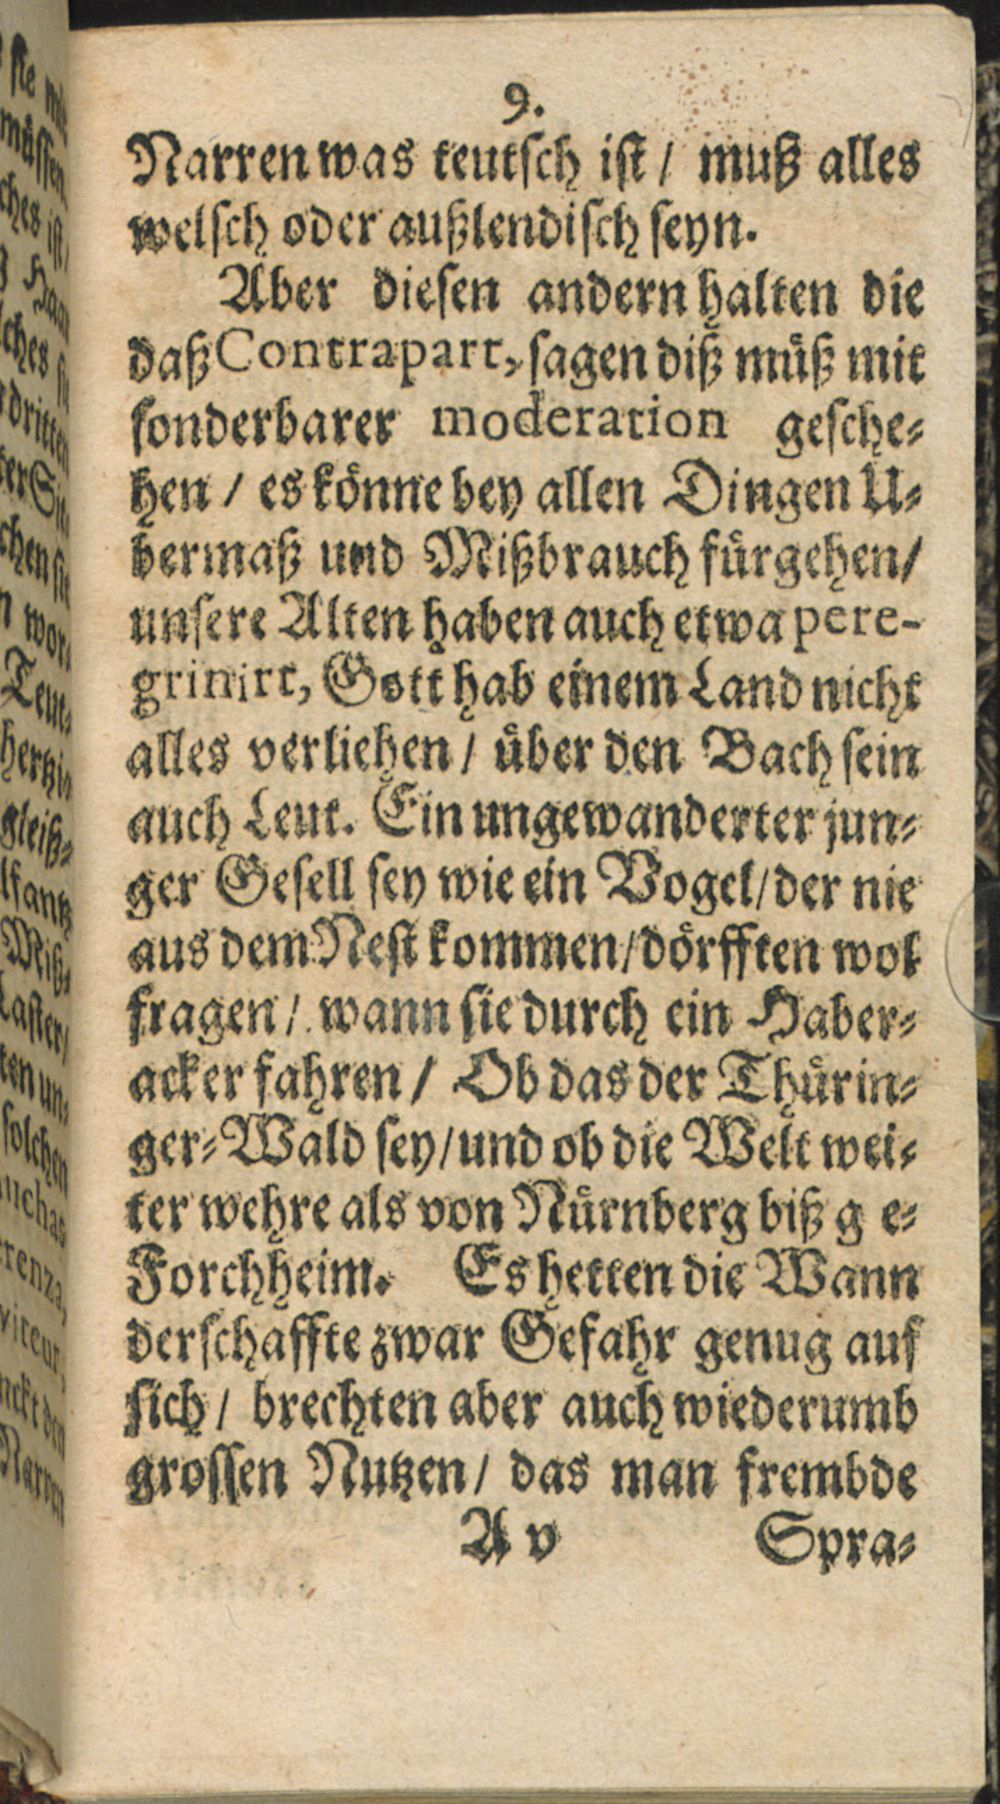 9.
Narren was teutsch ist / muß alles
welsch oder außlendisch seyn.
Aber diesen andern halten die
daß Contrapart, sagen diß müß mit
sonderbarer moderation gesche-
hen / es könne bey allen Dingen U-
bermaß und Mißbrauch fürgehen /
unsere Alten haben auch etwa pere-
grinirt, Gott hab einem Land nicht
alles verliehen / über den Bach sein
auch Leut. Ein ungewanderter jun-
ger Gesell sey wie ein Vogel / der nie
aus dem Nest kommen / dörfften wol
fragen / wann sie durch ein Haber-
acker fahren / Ob das der Thürin-
ger-Wald sey / und ob die Welt wei-
ter wehre als von Nürnberg biß g e-
Forchheim. Es hetten die Wann
derschaffte zwar Gefahr genug auf
sich / brechten aber auch wiederumb
grossen Nutzen / das man frembde
A v Spra-